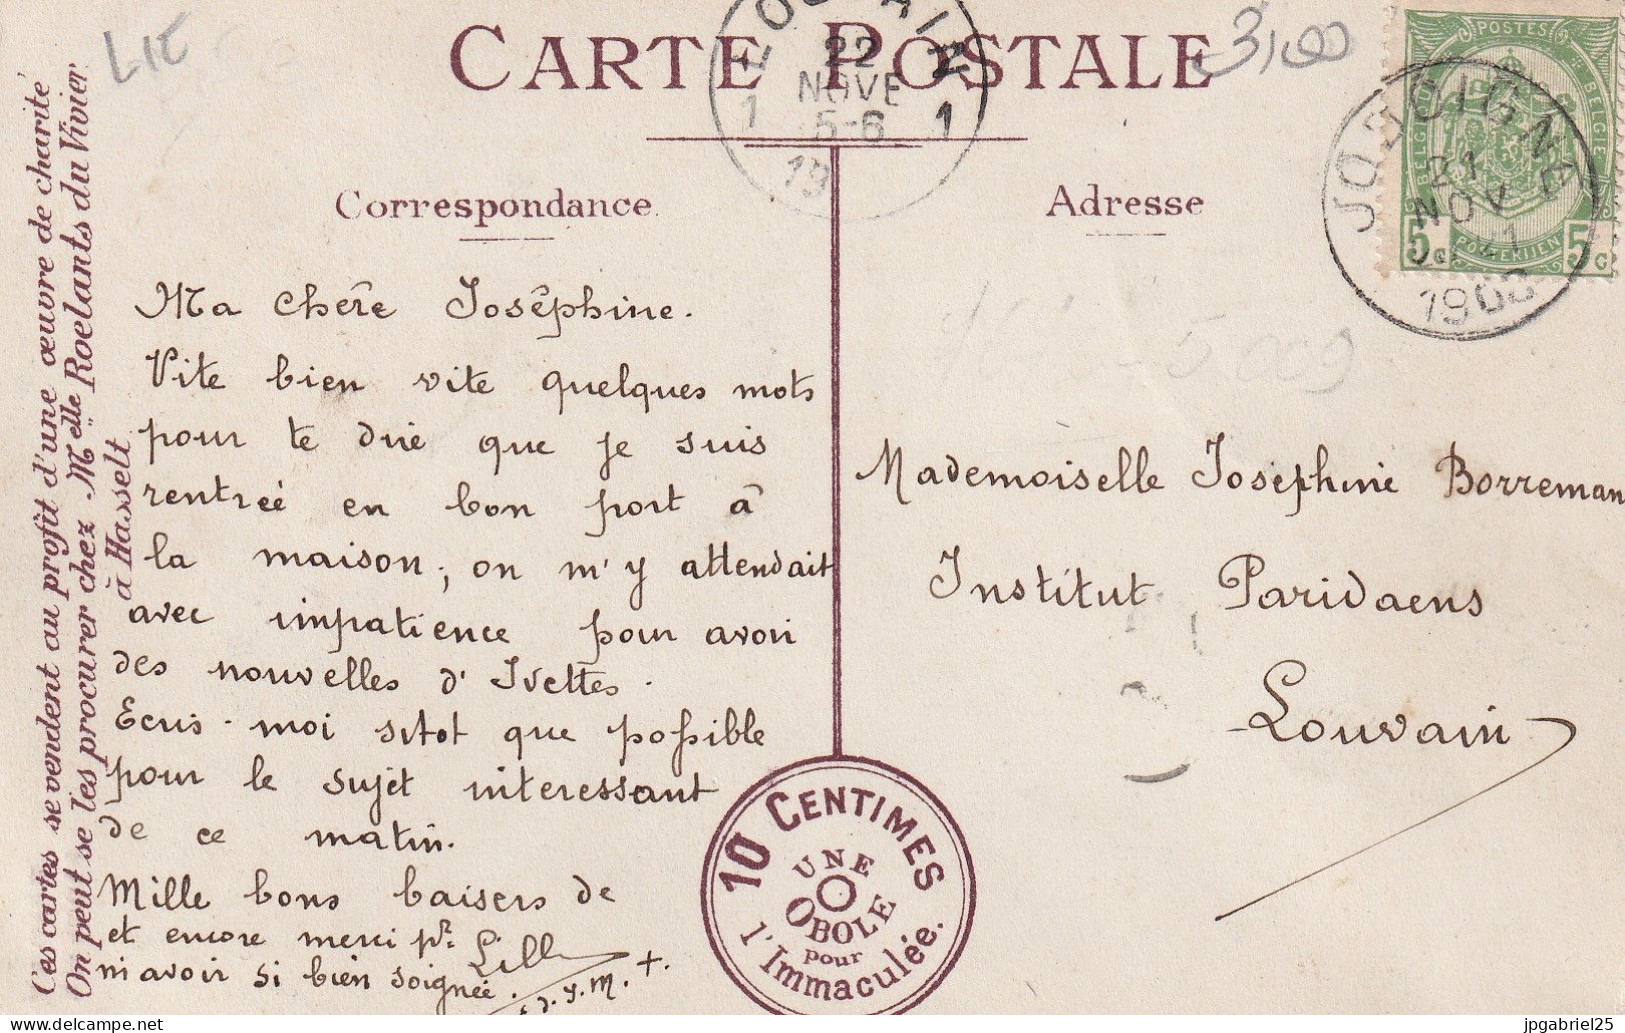 LIE
CARTE POSTALE
3,00
LOUVAIN
22
NOVE
5-6
1 1
19
POSTES
BELGIQUE BELGIE
5c POSTERIJEN 5c
JODOIGNE
21
NOV
1903
Correspondance
Adresse
Ces cartes se vendent au profit d'une œuvre de charité
On peut se les procurer chez Melle Roelants du Vivier
à Hasselt
Ma chère Joséphine.
Vite bien vite quelques mots
pour te dire que je suis
rentrée en bon port à
la maison; on m'y attendait
avec impatience pour avoir
des nouvelles d'Ivettes.
Ecris-moi sitot que possible
pour le sujet interessant
de ce matin.
Mille bons baisers de
et encore merci pr. Lille
m'avoir si bien soignée.
d. y. M. +.
Mademoiselle Joséphine Borreman
Institut Paridaens
Louvain
10 CENTIMES
UNE
OBOLE
pour
l'Immaculée.
jpgabriel25